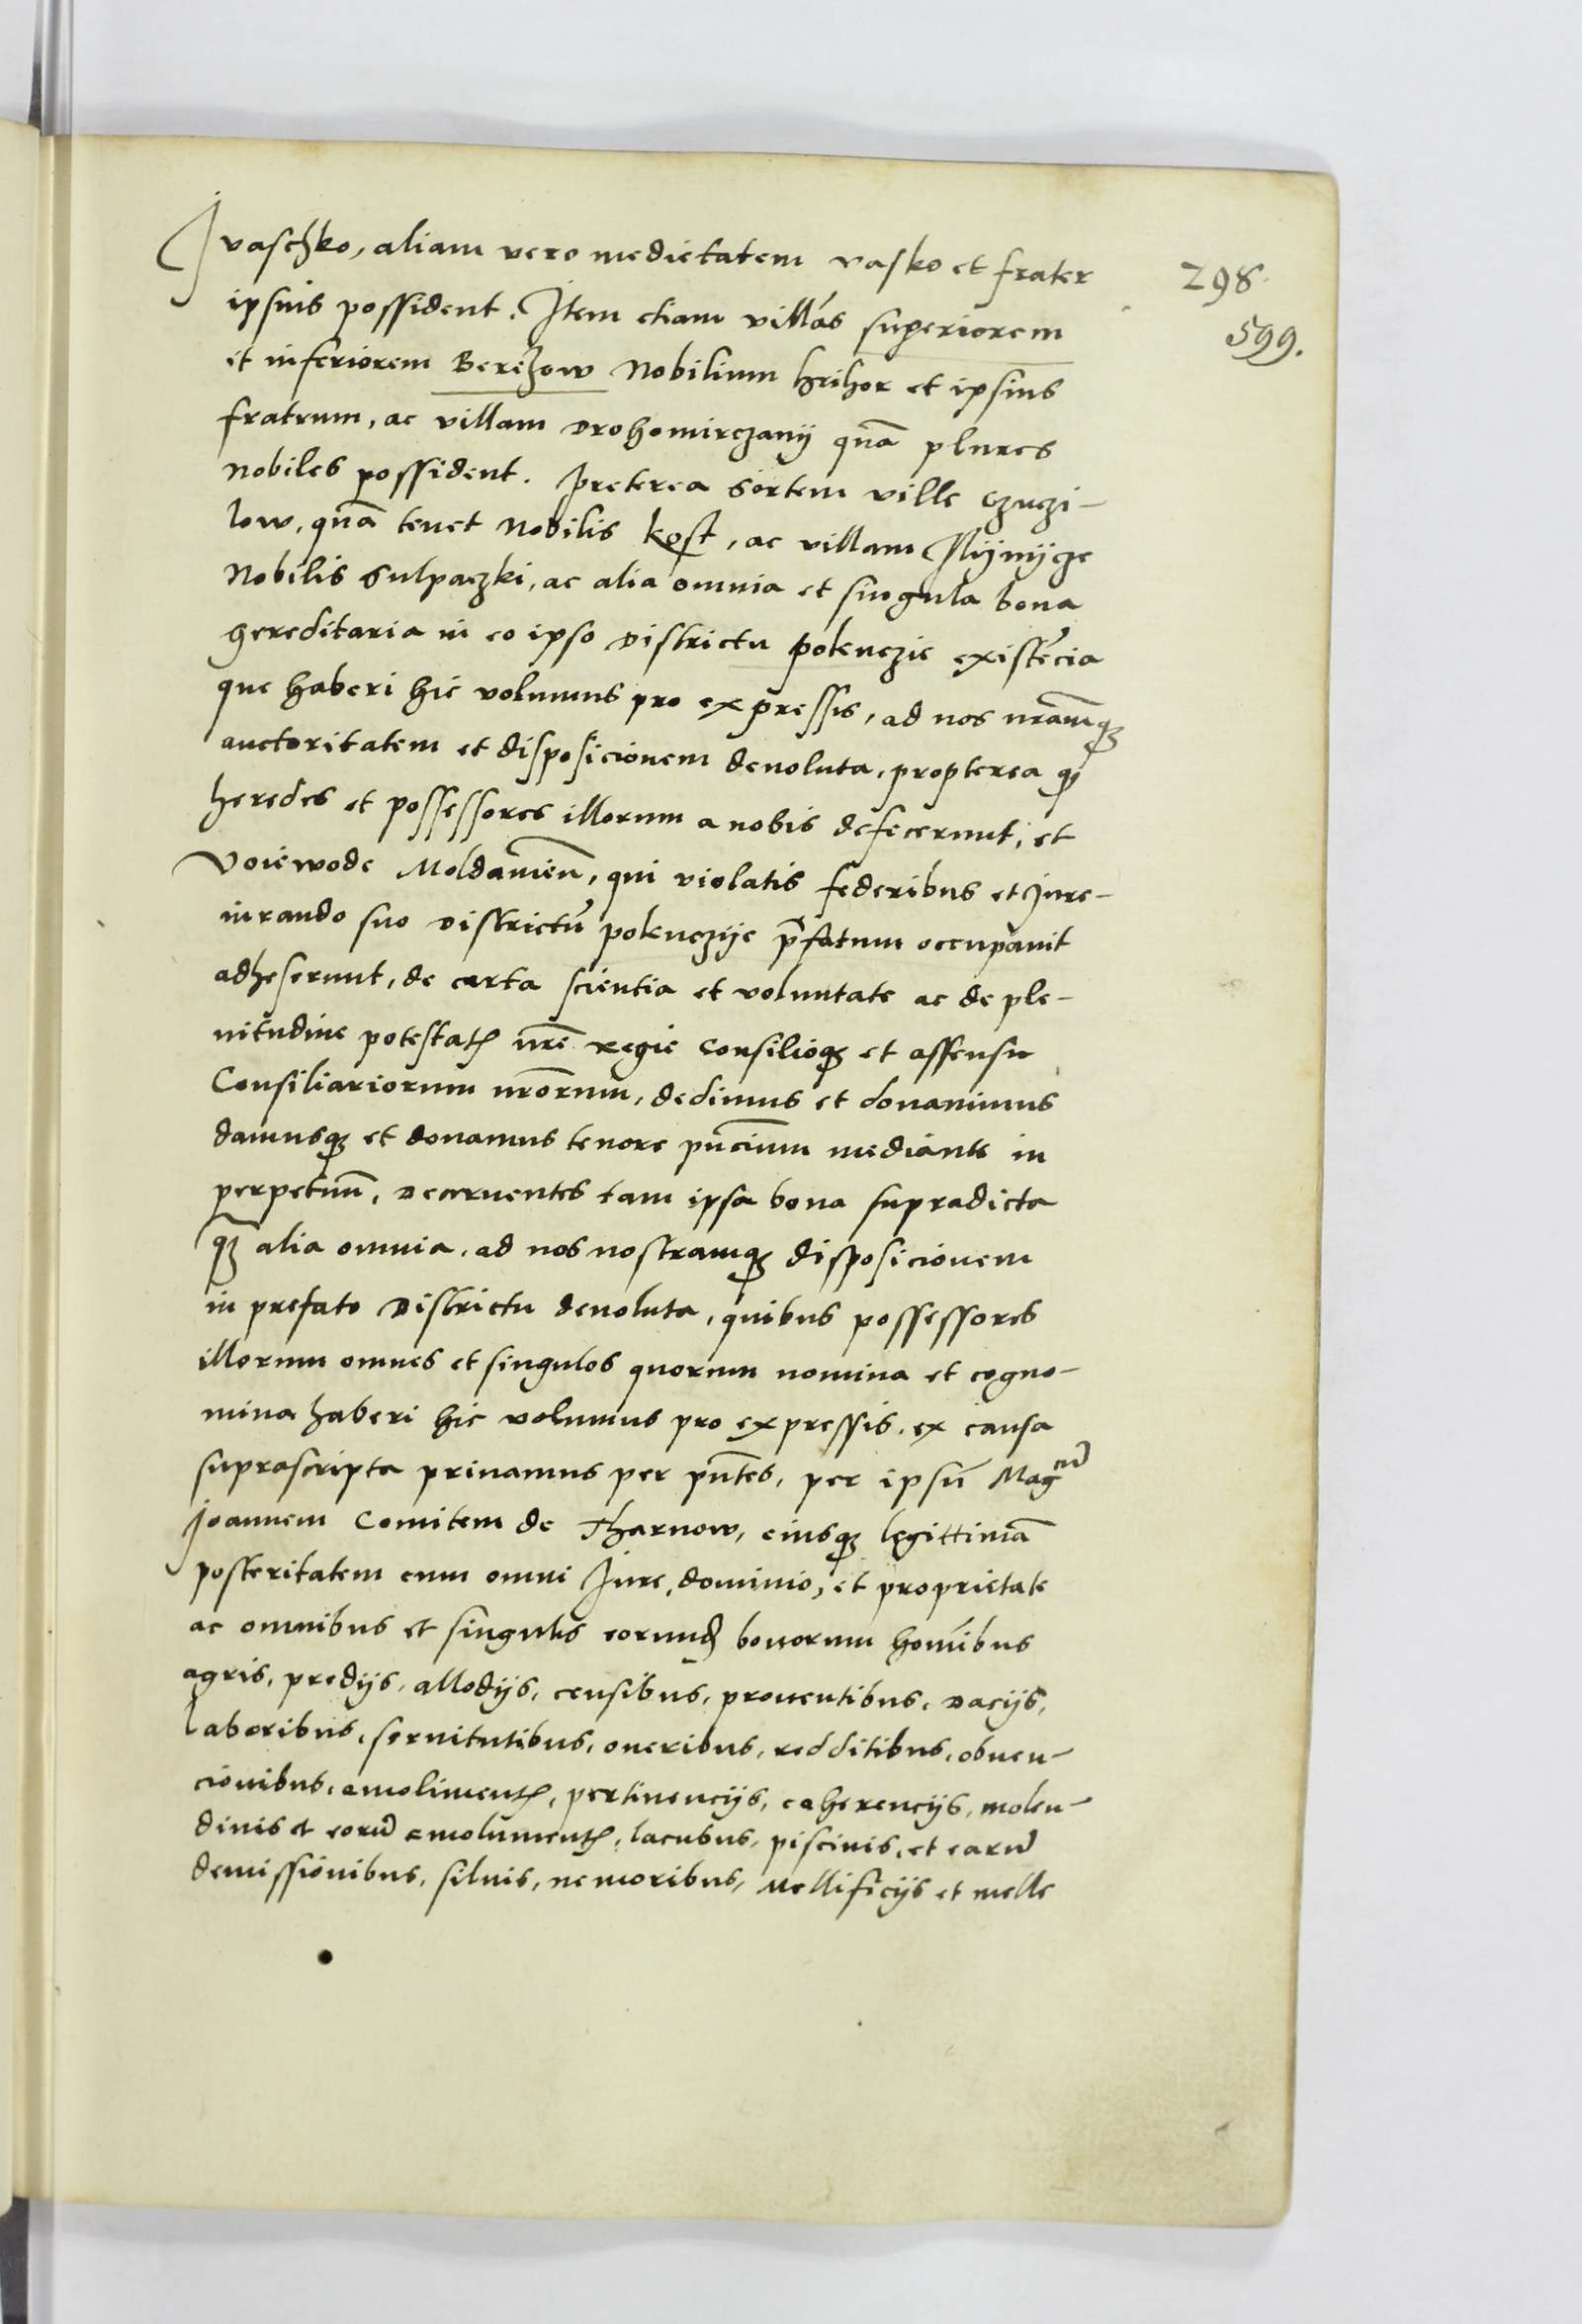 Ivaschko, aliam vero medietatem vasko et frater
298.
ipsius possident. Item etiam villas superiorem
599.
et inferiorem Berezow Nobilium hrihor et ipsius
fratrum, ac villam Drohomirczanij quā plures
Nobiles possident. Preterea sortem ville Czuczi-
low, quā tenet Nobilis kost, ac villam Slijnijcze
Nobilis sulpaczki, ac alia omnia et singula bona
hereditaria in eo ipso Districtu pokuczie existēcia
que haberi hic volumus pro expressis, ad nos nr̄amqꝫ
auctoritatem et disposicionem devoluta, propterea qꝫ
heredes et possessores illorum a nobis defecerunt, et
Voiewode Moldavien̄, qui violatis federibus et Jure-
iurando suo Districtū pokuczije p̄fatum occupavit
adheserunt, de certa scientia et voluntate ac de ple-
nitudine potestatꝭ nr̄e regie Consilioqꝫ et assensu
Consiliariorum nr̄orum, dedimus et donavimus
damusqꝫ et donamus tenore pn̄cium mediante in
perpetuū, Decernentes tam ipsa bona supradicta
qꝫ alia omnia, ad nos nostramqꝫ disposicionem
in prefato Districtu devoluta, quibus possessores
illorum omnes et singulos quorum nomina et cogno-
mina haberi hic volumus pro expressis, ex causa
suprascripta privamus per pn̄tes, per ipsū Magcū
Joannem Comitem de Tharnow, eiusqꝫ legittimā
posteritatem cum omni Jure, dominio, et proprietate
ac omnibus et singulis eorundꝫ bonorum homībus
agris, predijs, allodijs, censibus, proventibus, Dacijs,
laboribus, servitutibus, oneribus, redditibus, obven-
cionibus, emolimentꝭ, pertinencijs, coherencijs, molen-
dinis et eorū emolumentꝭ, lacubus, piscinis, et earū
demissionibus, silvis, nemoribus, Mellificijs et melle